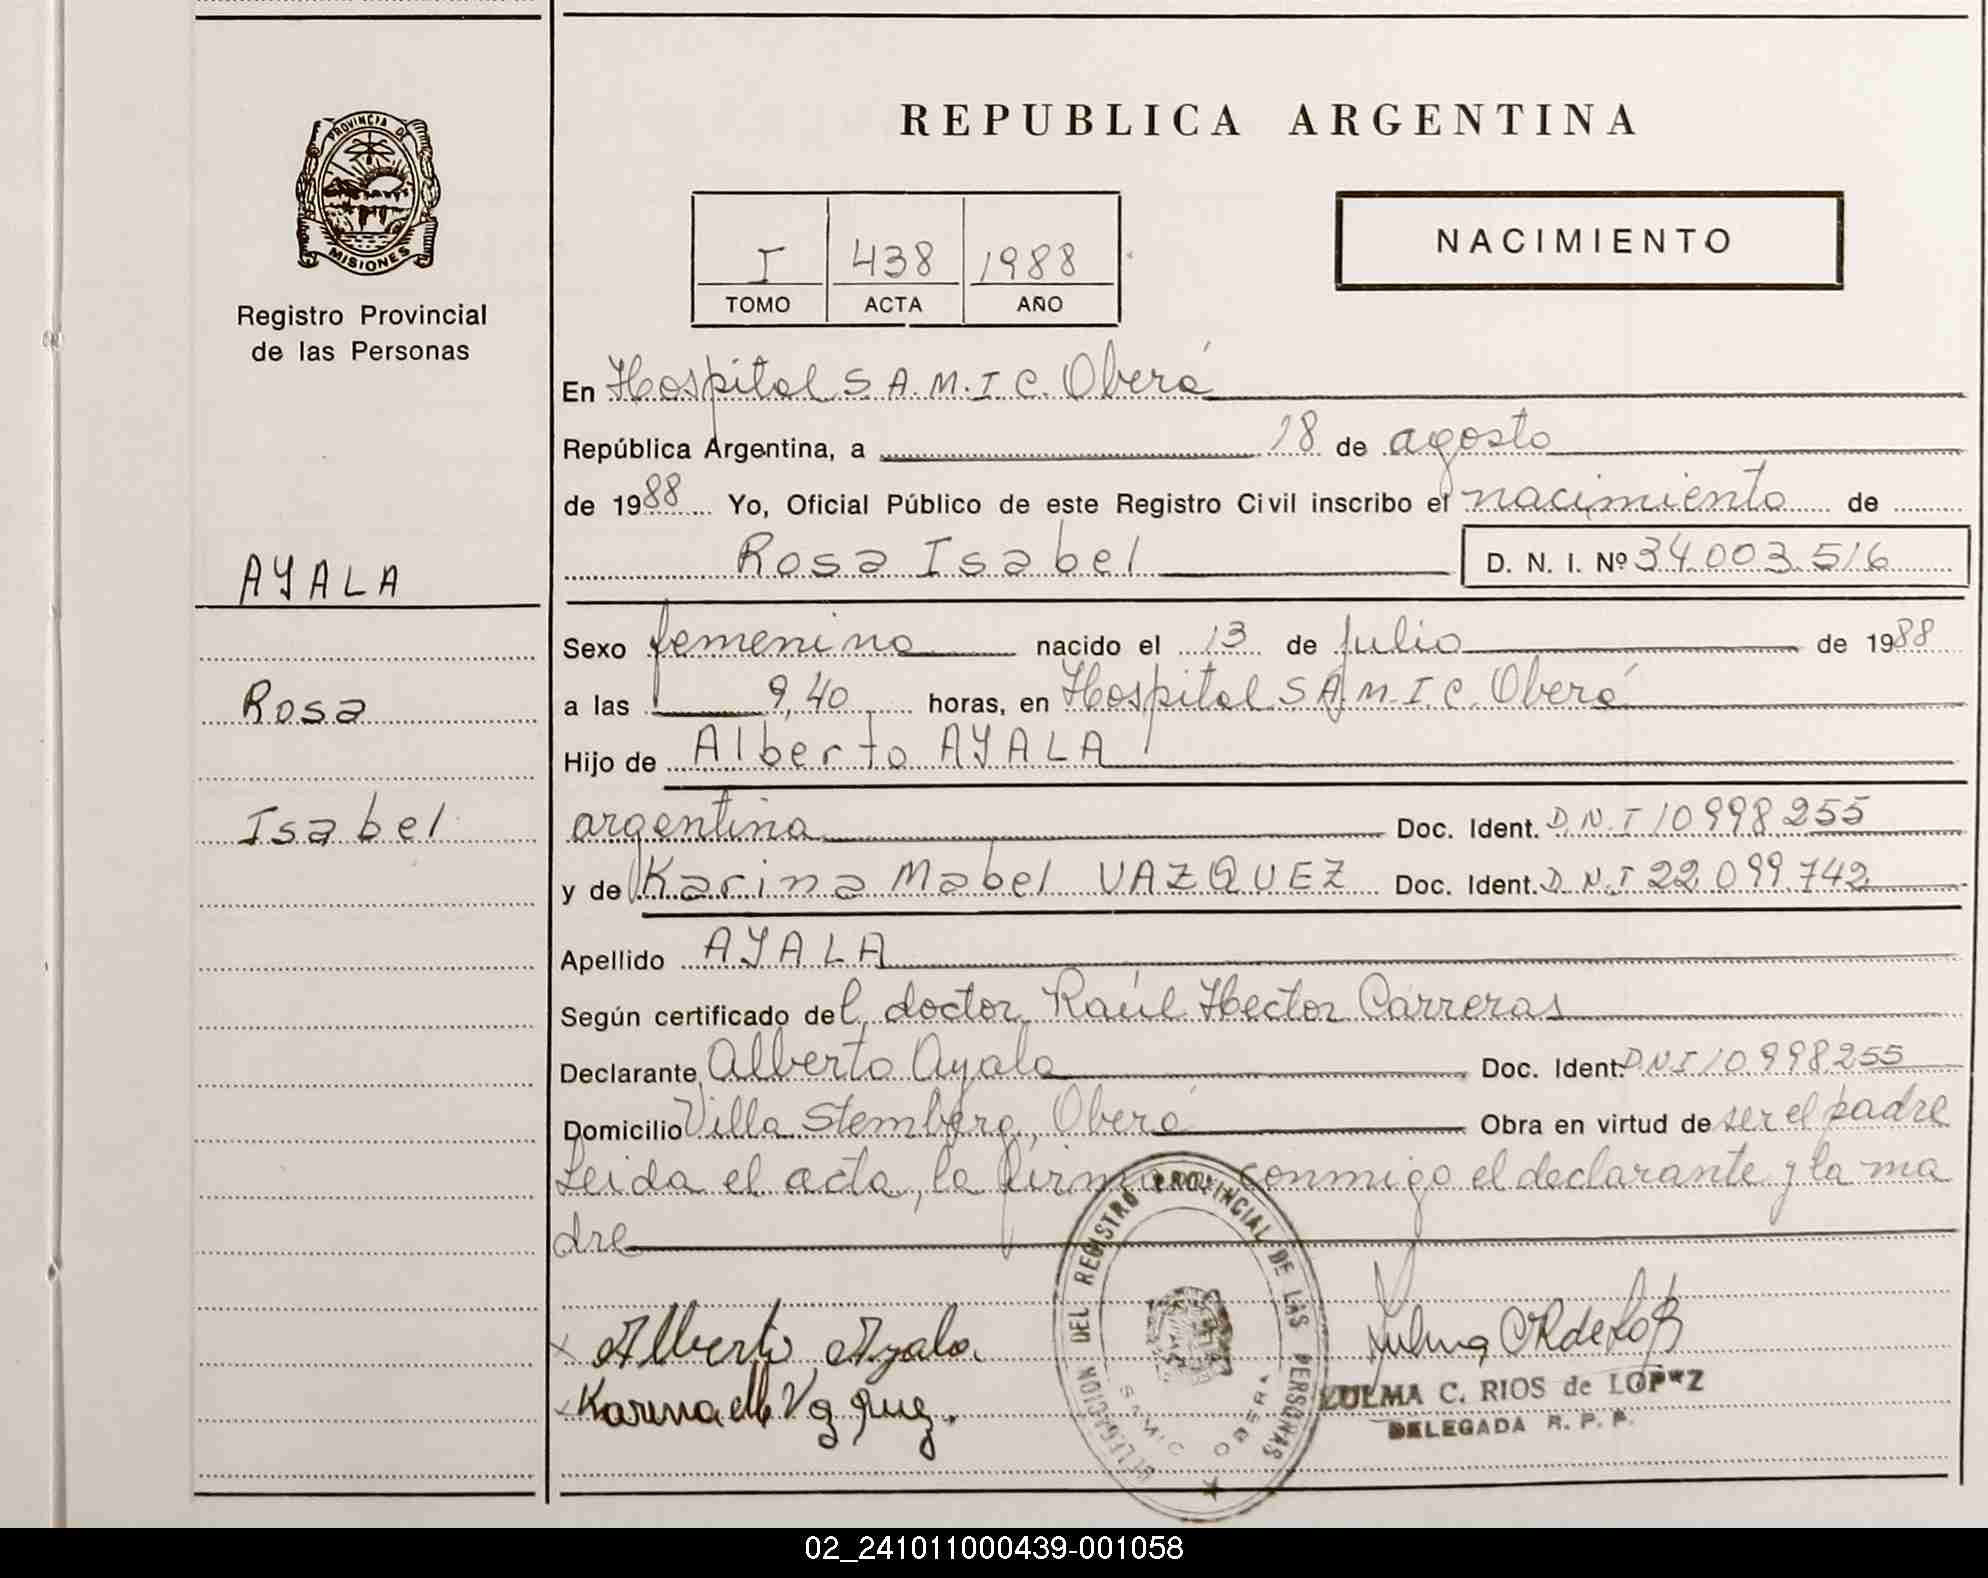 PROVINCIA DE
MISIONES
Registro Provincial
de las Personas
AYALA
Rosa
Isabel
REPUBLICA ARGENTINA
I 438 1988
TOMO ACTA AÑO
NACIMIENTO
En Hospital S.A.M.I.C. Oberá
República Argentina, a 18 de agosto
de 1988 Yo, Oficial Público de este Registro Civil inscribo el nacimiento de
Rosa Isabel D. N. I. Nº 34.003.516
Sexo femenino nacido el 13 de julio de 1988
a las 9,40 horas, en Hospital S.A.M.I.C. Oberá
Hijo de Alberto AYALA
argentina Doc. Ident. D.N.I 10.998.255
y de Karina Mabel VAZQUEZ Doc. Ident. D.N.I 22.099.742
Apellido AYALA
Según certificado del doctor Raúl Hector Carreras
Declarante Alberto Ayala Doc. Ident: D.N.I 10.998.255
Domicilio Villa Stemberg, Oberá Obra en virtud de ser el padre
Leida el acta, la firman conmigo el declarante y la ma
dre
Alberto Ayala
Karina M Vazquez.
DELEGACION DEL REGISTRO PROVINCIAL DE LAS PERSONAS
SAMIC OBERA
ZULMA C. RIOS de LOPEZ
DELEGADA R. P. P.
02_241011000439-001058